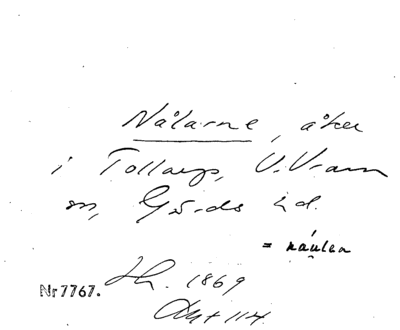 Nålarne, åker
i Tollarp, V. Vram
sn, Gärds hd.
= náulen
Nr 7767.
1869
Akt 114